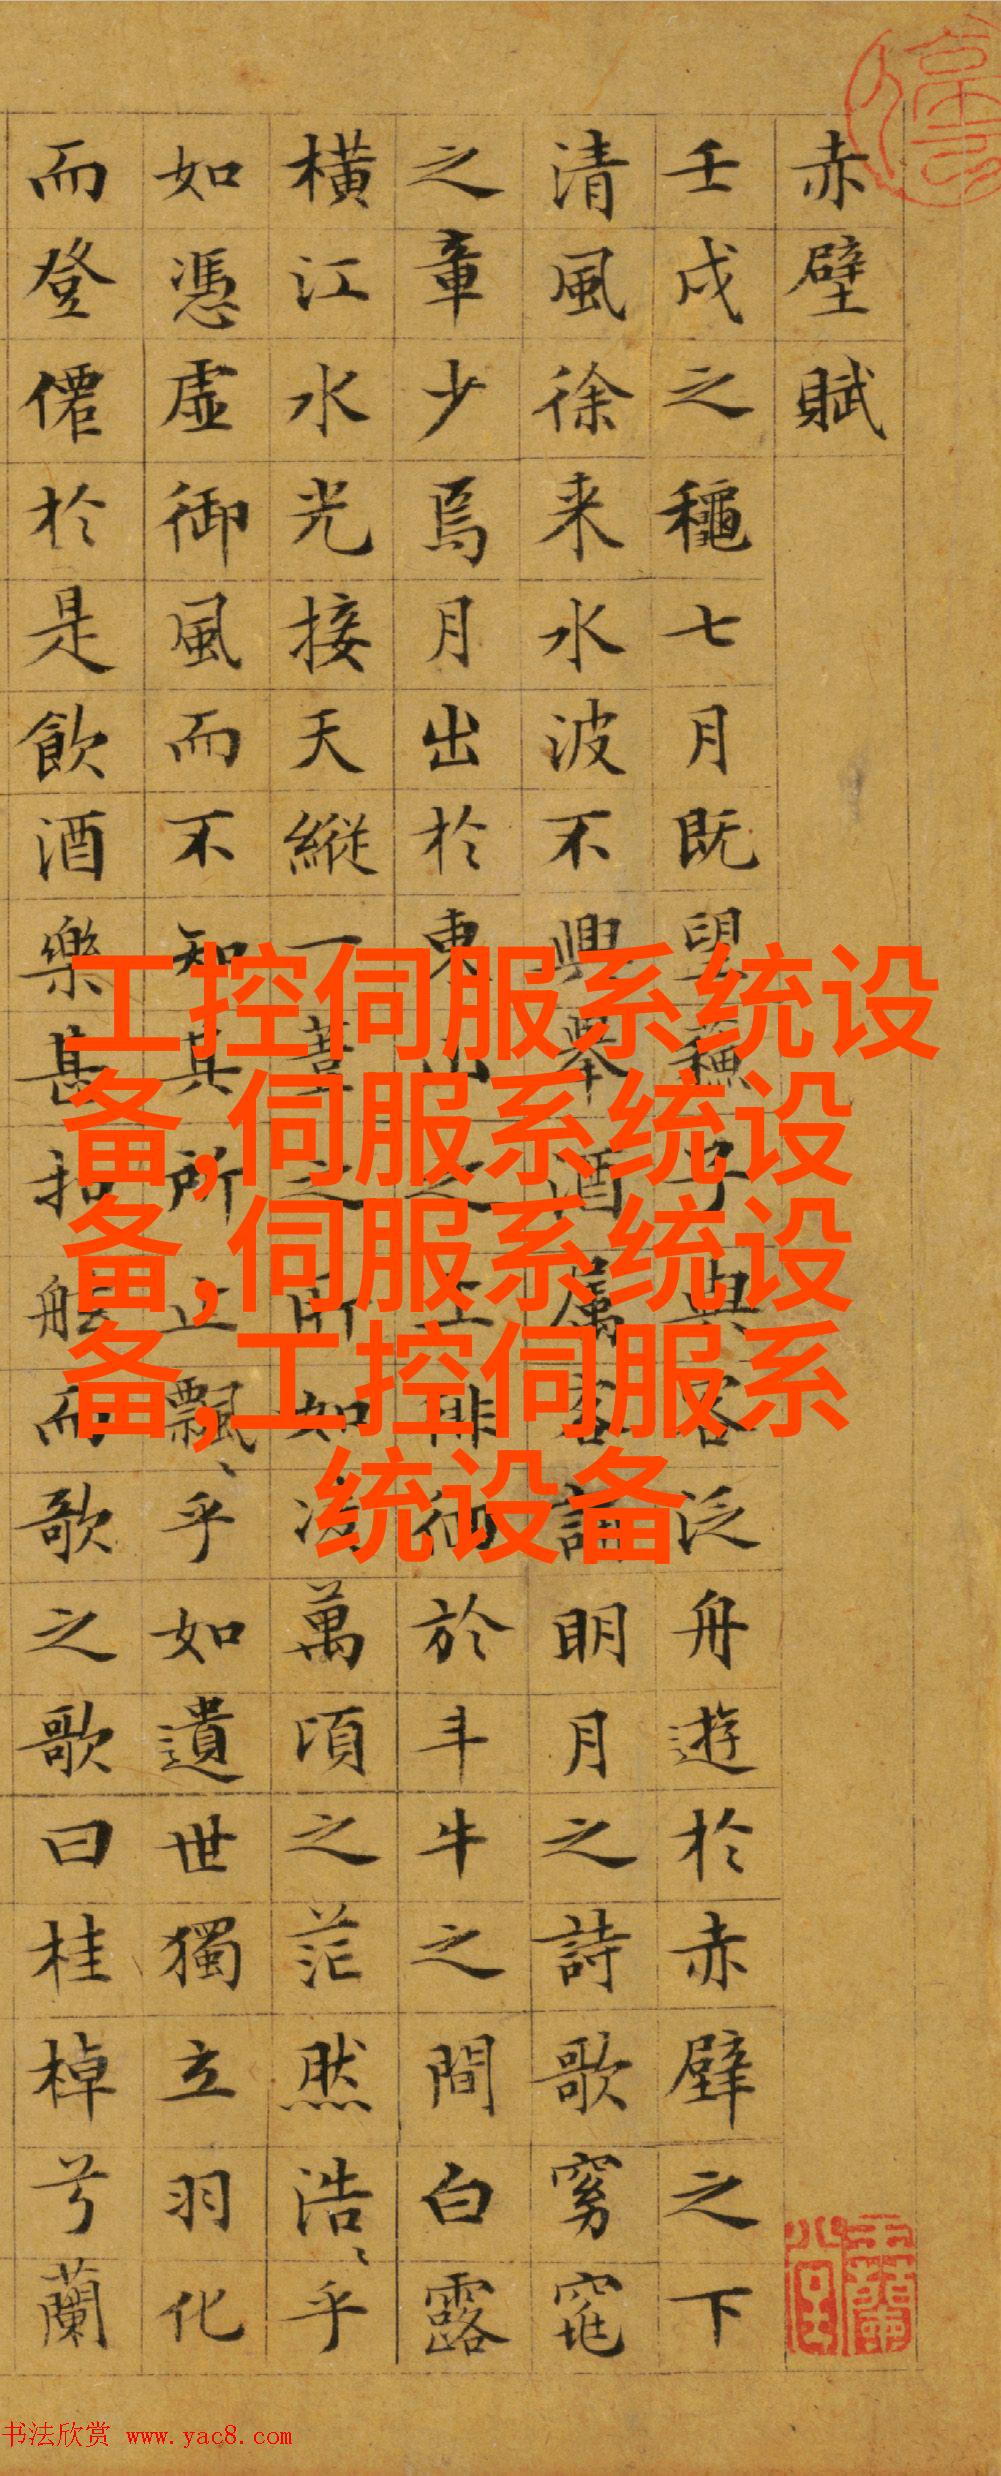 赤壁賦
壬戌之龝七月既望蘓子與客泛舟遊於赤壁之下
清風徐来水波不興舉酒属客誦明月之詩歌窈窕
之章少焉月出於東山之上徘徊於斗牛之間白露
橫江水光接天縱一葦之所如凌萬頃之茫然浩〻乎
如憑虛御風而不知其所止飄〻乎如遺世獨立羽化
而登僊於是飲酒樂甚扣舷而歌之歌曰桂棹兮蘭
工控伺服系统设
备,伺服系统设
备,伺服系统设
备,工控伺服系
统设备
书法欣赏 www.yac8.com